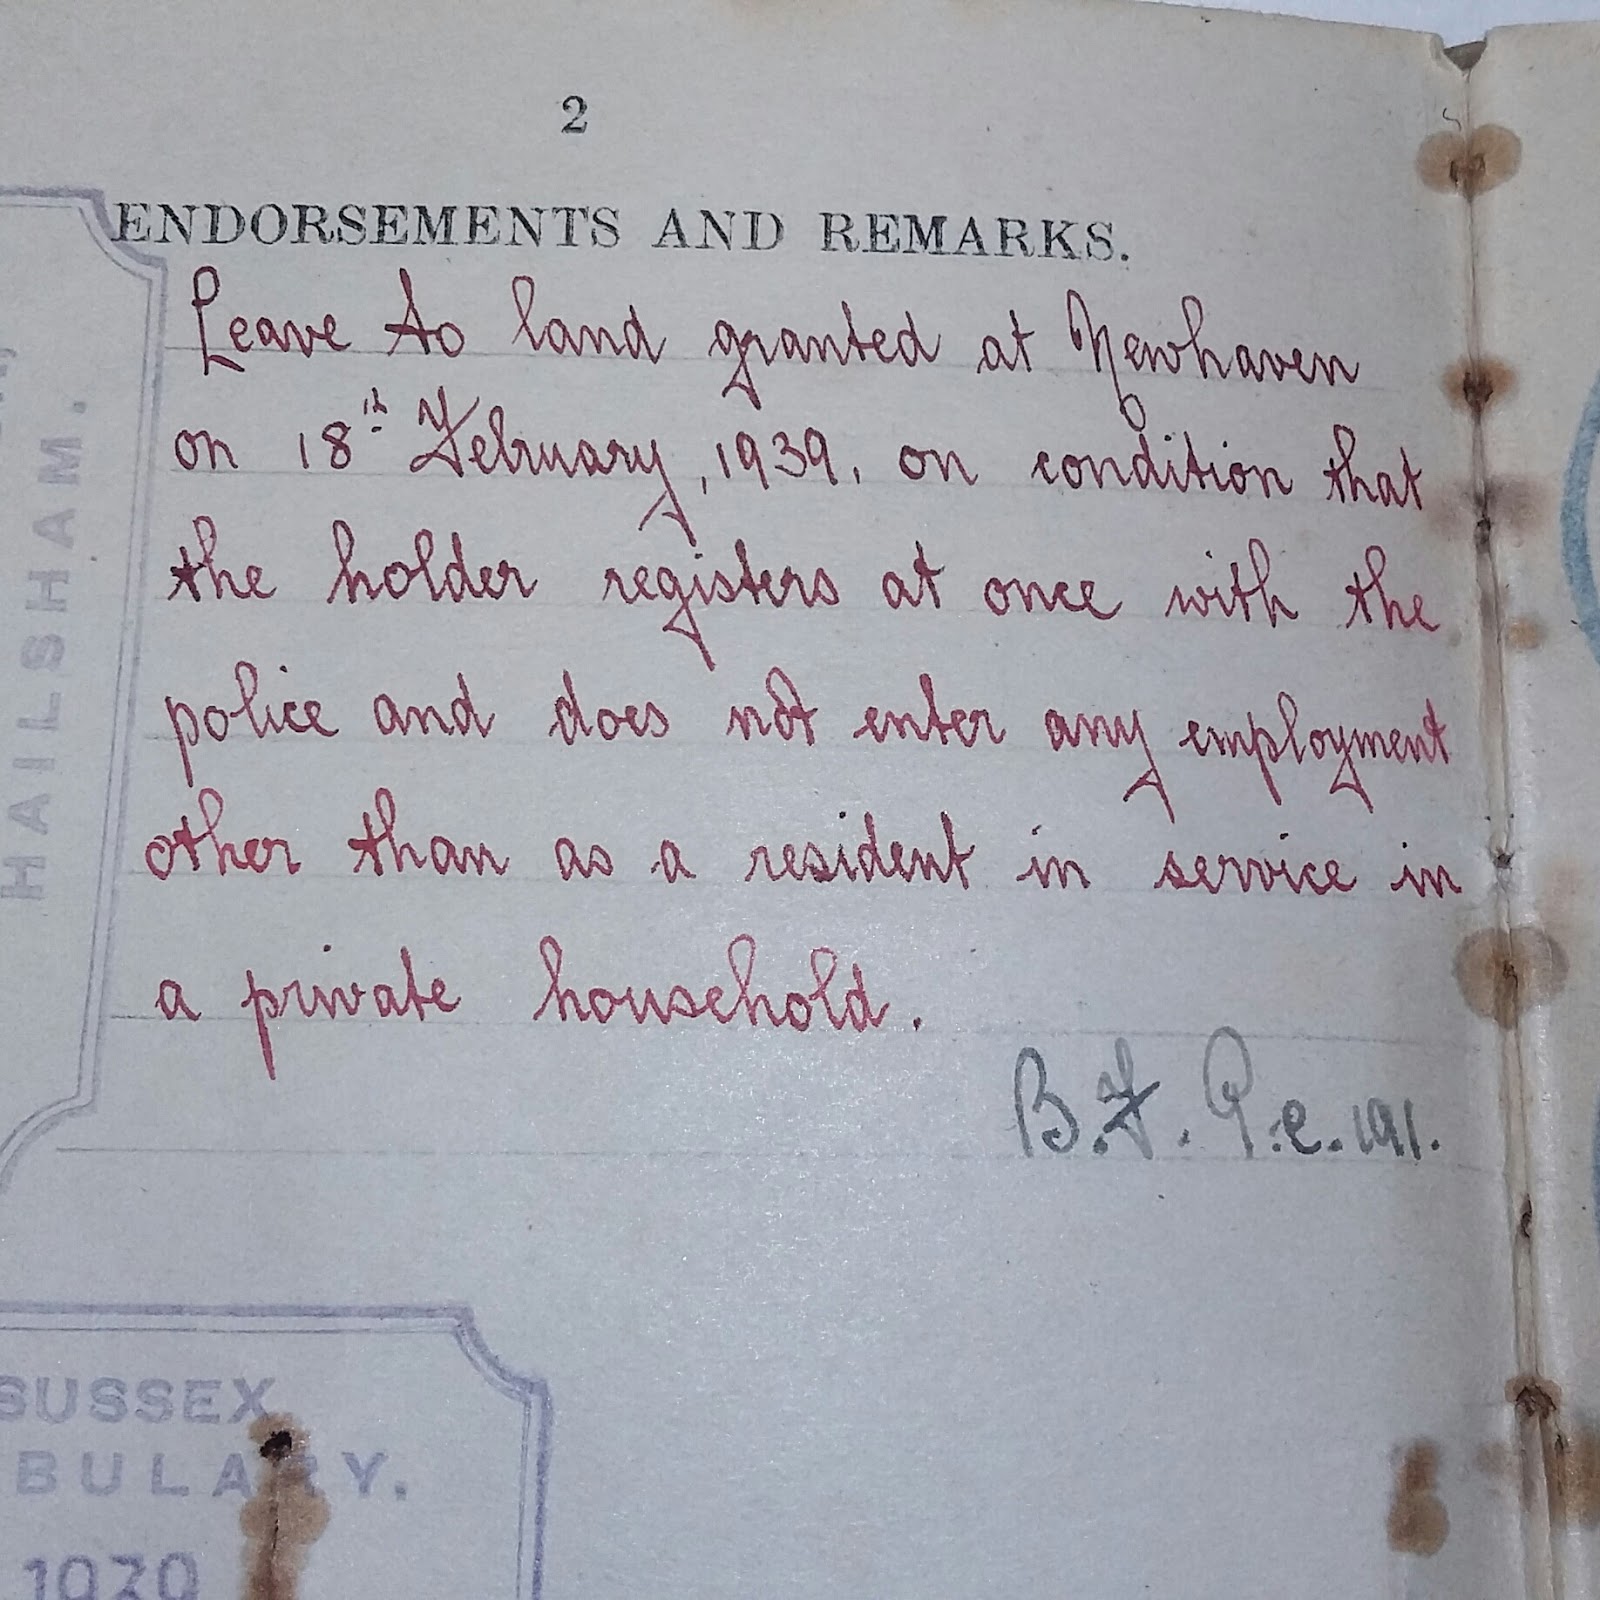 2
ENDORSEMENTS AND REMARKS.
Leave to land granted at Newhaven
on 18th February, 1939, on condition that
the holder registers at once with the
police and does not enter any employment
other than as a resident in service in
a private household.
B.F. P.c. 191.
HAILSHAM.
SUSSEX
BULARY.
1939